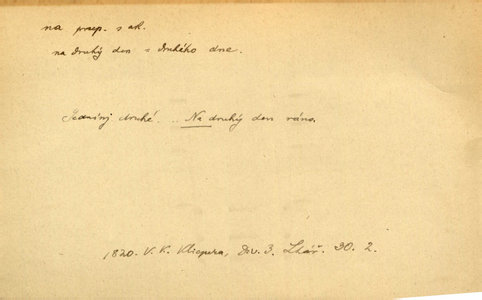 na praep. s ak.
na druhý den = druhého dne.
druhé... Na druhý den ráno.
1820. V. K. Klicpera, Div. 3. Lhář. 30. 2.